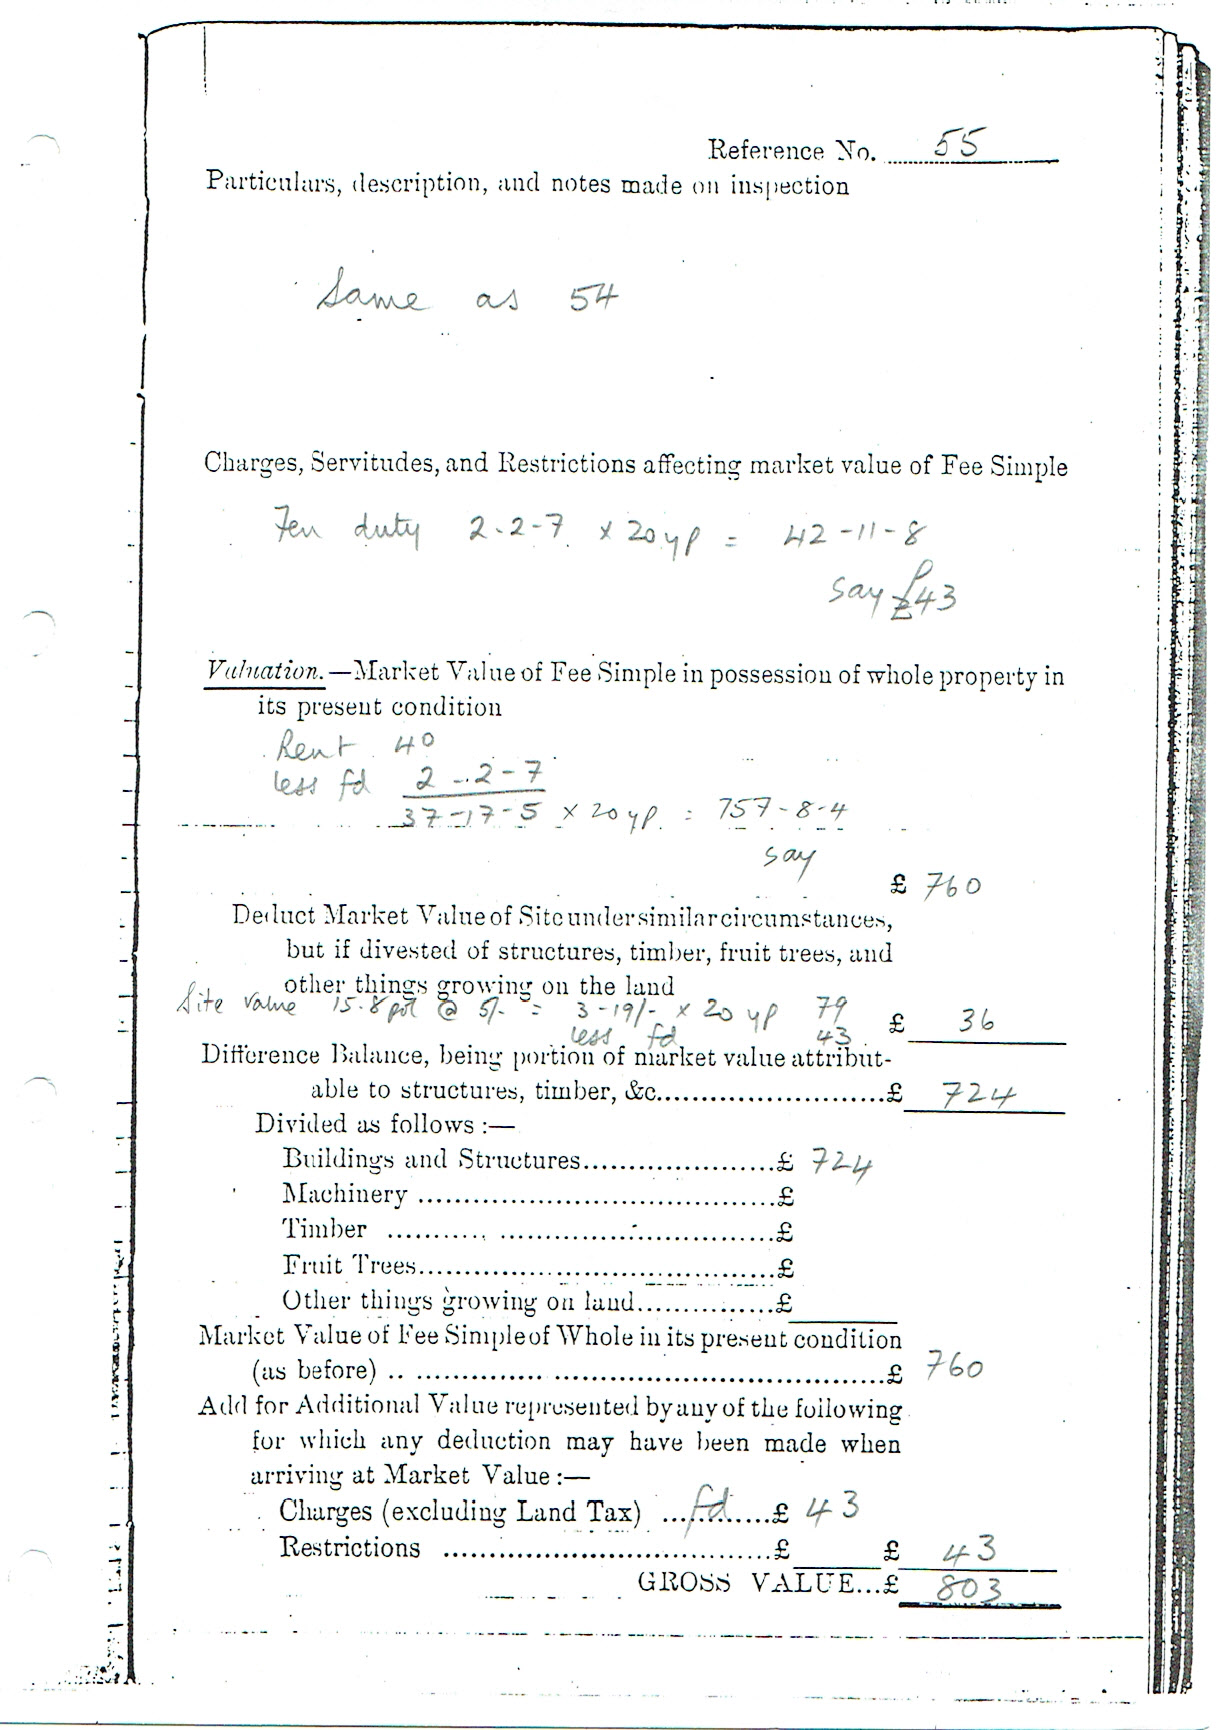 Reference No. 55
Particulars, description, and notes made on inspection
Same as 54
Charges, Servitudes, and Restrictions affecting market value of Fee Simple
Feu duty 2-2-7 × 20 yp = 42-11-8
say £43
Valuation.—Market Value of Fee Simple in possession of whole property in
its present condition
Rent 40
less fd 2-2-7
37-17-5 × 20 yp = 757-8-4
say
£ 760
Deduct Market Value of Site under similar circumstances,
but if divested of structures, timber, fruit trees, and
other things growing on the land
Site value 15.8 pol @ 5/- = 3-19/- × 20 yp 79
less fd 43 £ 36
Difference Balance, being portion of market value attribut-
able to structures, timber, &c........................£ 724
Divided as follows :—
Buildings and Structures......................£ 724
Machinery ..........................................£
Timber ..........................................£
Fruit Trees..........................................£
Other things growing on land................£
Market Value of Fee Simple of Whole in its present condition
(as before) .. ....................................................£ 760
Add for Additional Value represented by any of the following
for which any deduction may have been made when
arriving at Market Value :—
Charges (excluding Land Tax) ...fd......£ 43
Restrictions ....................................£ £ 43
GROSS VALUE...£ 803